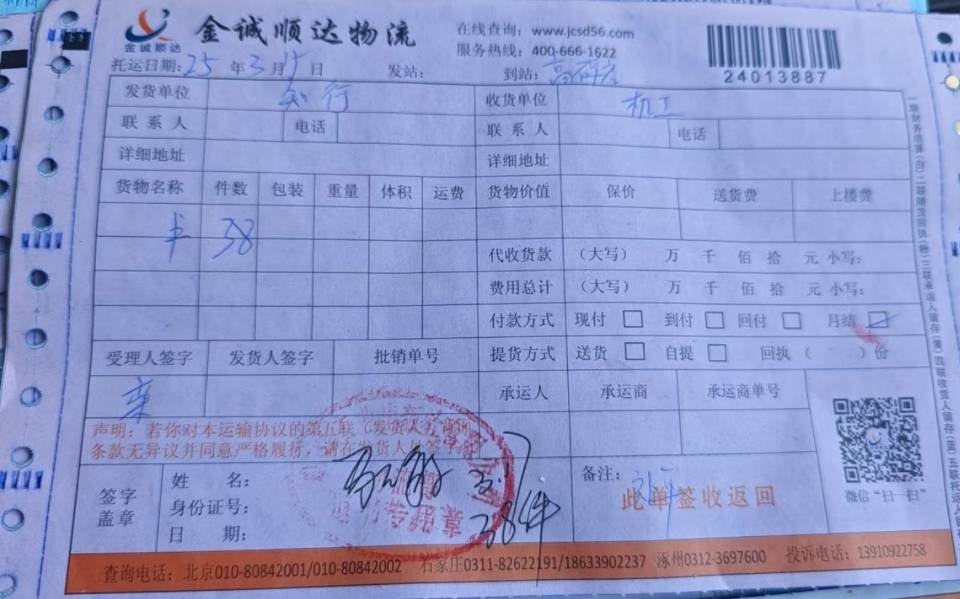 金诚顺达
金诚顺达物流
在线查询：www.jcsd56.com
服务热线：400-666-1622
24013887
托运日期：25 年 3 月 15 日 发站： 到站：
发货单位 知行 收货单位 机工
联系人 电话 联系人 电话
详细地址 详细地址
货物名称 件数 包装 重量 体积 运费 货物价值 保价 送货费 上楼费
卡 38
代收货款 （大写） 万 千 佰 拾 元 小写：
费用总计 （大写） 万 千 佰 拾 元 小写：
付款方式 现付 □ 到付 □ 回付 □ 月结 ☑
受理人签字 发货人签字 批销单号 提货方式 送货 □ 自提 □ 回执（ ）份
栾 承运人 承运商 承运商单号
声明：若你对本运输协议的第五联（发货人）背面
条款无异议并同意严格履行，请在发货人处签字
签字
盖章
姓 名：
身份证号：
日 期：
38件
备注：
此单签收返回
微信“扫一扫”
查询电话：北京010-80842001/010-80842002 石家庄0311-82622191/18633902237 涿州0312-3697600 投诉电话：13910922758